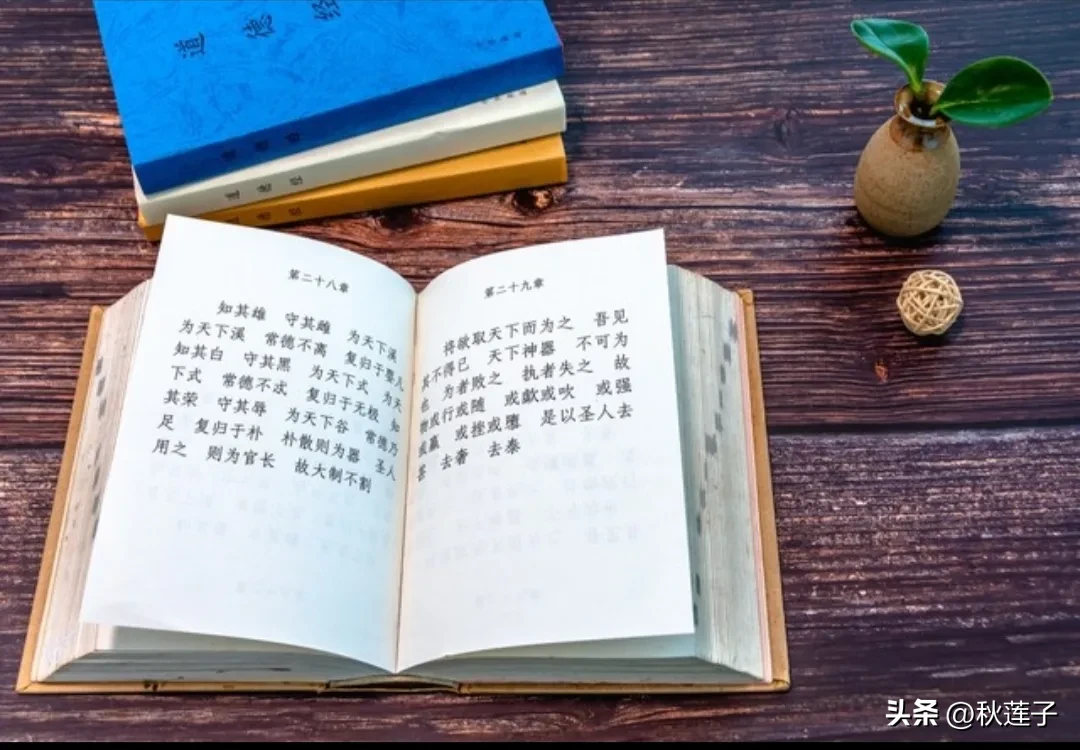 道德经
道德经
第二十八章
知其雄 守其雌 为天下溪
为天下溪 常德不离 复归于婴儿
知其白 守其黑 为天下式 为天
下式 常德不忒 复归于无极 知
其荣 守其辱 为天下谷 常德乃
足 复归于朴 朴散则为器 圣人
用之 则为官长 故大制不割
第二十九章
将欲取天下而为之 吾见
其不得已 天下神器 不可为
也 为者败之 执者失之 故
物或行或随 或歔或吹 或强
或羸 或挫或隳 是以圣人去
甚 去奢 去泰
头条 @秋莲子